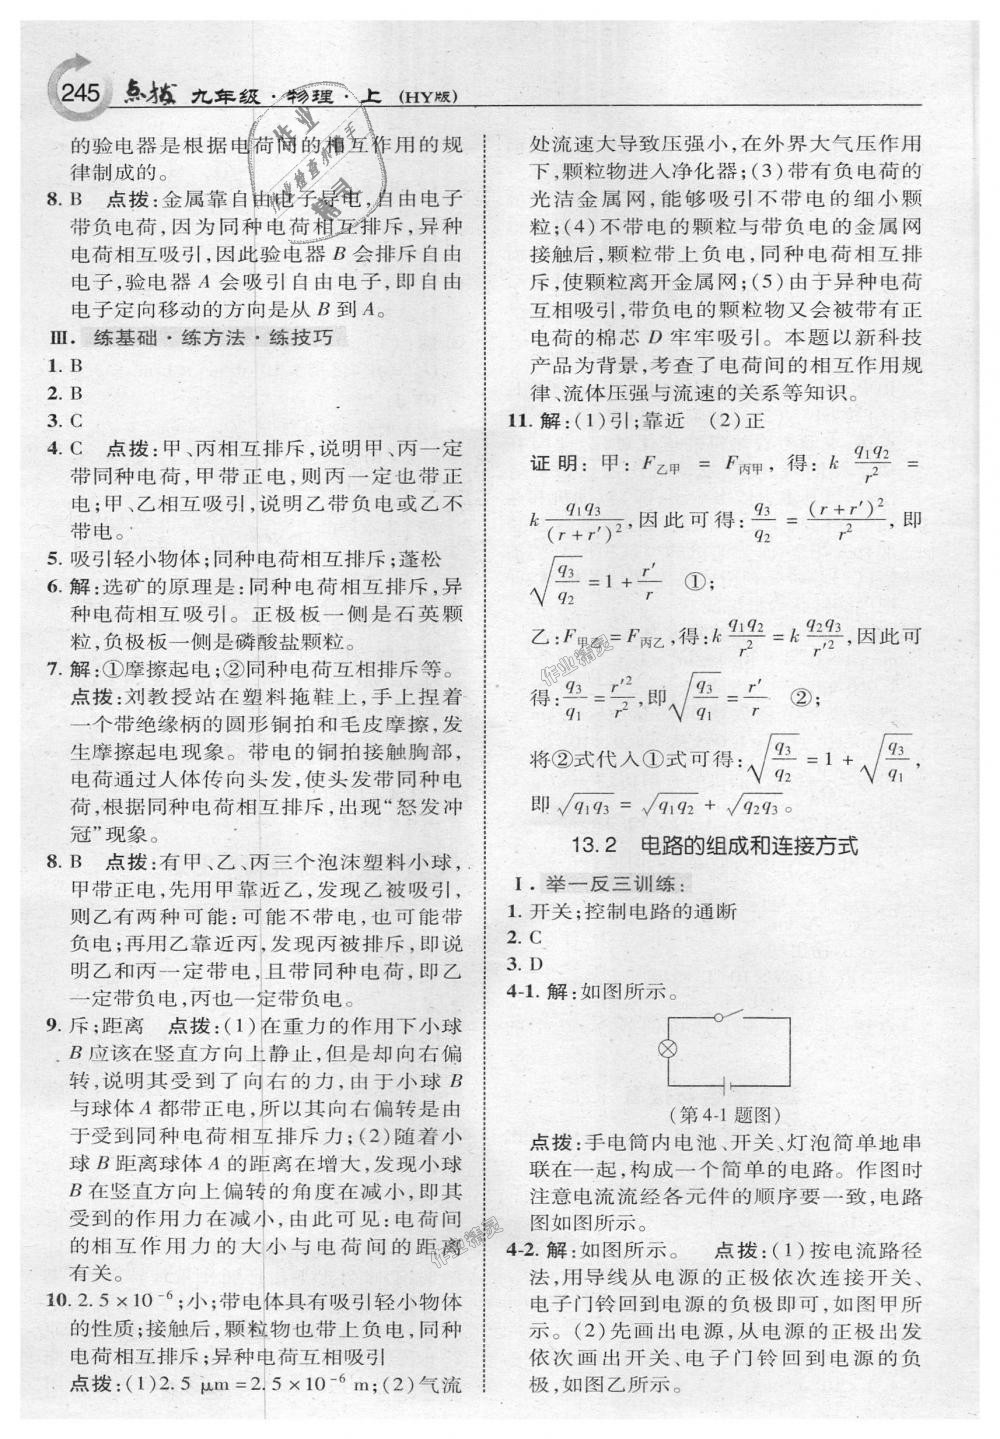 245 点拨 九年级·物理·上 (HY版)
的验电器是根据电荷间的相互作用的规
律制成的。
8. B 点拨:金属靠自由电子导电,自由电子
带负电荷,因为同种电荷相互排斥,异种
电荷相互吸引,因此验电器 B 会排斥自由
电子,验电器 A 会吸引自由电子,即自由
电子定向移动的方向是从 B 到 A。
Ⅲ. 练基础·练方法·练技巧
1. B
2. B
3. C
4. C 点拨:甲、丙相互排斥,说明甲、丙一定
带同种电荷,甲带正电,则丙一定也带正
电;甲、乙相互吸引,说明乙带负电或乙不
带电。
5. 吸引轻小物体;同种电荷相互排斥;蓬松
6. 解:选矿的原理是:同种电荷相互排斥,异
种电荷相互吸引。正极板一侧是石英颗
粒,负极板一侧是磷酸盐颗粒。
7. 解:①摩擦起电;②同种电荷互相排斥等。
点拨:刘教授站在塑料拖鞋上,手上捏着
一个带绝缘柄的圆形铜拍和毛皮摩擦,发
生摩擦起电现象。带电的铜拍接触胸部,
电荷通过人体传向头发,使头发带同种电
荷,根据同种电荷相互排斥,出现“怒发冲
冠”现象。
8. B 点拨:有甲、乙、丙三个泡沫塑料小球,
甲带正电,先用甲靠近乙,发现乙被吸引,
则乙有两种可能:可能不带电,也可能带
负电;再用乙靠近丙,发现丙被排斥,即说
明乙和丙一定带电,且带同种电荷,即乙
一定带负电,丙也一定带负电。
9. 斥;距离 点拨:(1)在重力的作用下小球
B 应该在竖直方向上静止,但是却向右偏
转,说明其受到了向右的力,由于小球 B
与球体 A 都带正电,所以其向右偏转是由
于受到同种电荷相互排斥力;(2)随着小
球 B 距离球体 A 的距离在增大,发现小球
B 在竖直方向上偏转的角度在减小,即其
受到的作用力在减小,由此可见:电荷间
的相互作用力的大小与电荷间的距离
有关。
10. 2.5×10⁻⁶;小;带电体具有吸引轻小物体
的性质;接触后,颗粒物也带上负电,同种
电荷相互排斥;异种电荷互相吸引
点拨:(1)2.5 μm=2.5×10⁻⁶ m;(2)气流
处流速大导致压强小,在外界大气压作用
下,颗粒物进入净化器;(3)带有负电荷的
光洁金属网,能够吸引不带电的细小颗
粒;(4)不带电的颗粒与带负电的金属网
接触后,颗粒带上负电,同种电荷相互排
斥,使颗粒离开金属网;(5)由于异种电荷
互相吸引,带负电的颗粒物又会被带有正
电荷的棉芯 D 牢牢吸引。本题以新科技
产品为背景,考查了电荷间的相互作用规
律、流体压强与流速的关系等知识。
11. 解:(1)引;靠近 (2)正
证明:甲:F乙甲 = F丙甲,得:k q₁q₂/r² =
k q₁q₃/(r+r′)²,因此可得:q₃/q₂ = (r+r′)²/r²,即
√(q₃/q₂) = 1 + r′/r ①;
乙:F甲乙=F丙乙,得:k q₁q₂/r² = k q₂q₃/r′²,因此可
得:q₃/q₁ = r′²/r²,即√(q₃/q₁) = r′/r ②;
将②式代入①式可得:√(q₃/q₂) = 1 + √(q₃/q₁),
即 √(q₁q₃) = √(q₁q₂) + √(q₂q₃)。
13.2 电路的组成和连接方式
Ⅰ. 举一反三训练:
1. 开关;控制电路的通断
2. C
3. D
4-1. 解:如图所示。
(第 4-1 题图)
点拨:手电筒内电池、开关、灯泡简单地串
联在一起,构成一个简单的电路。作图时
注意电流流经各元件的顺序要一致,电路
图如图所示。
4-2. 解:如图所示。 点拨:(1)按电流路径
法,用导线从电源的正极依次连接开关、
电子门铃回到电源的负极即可,如图甲所
示。(2)先画出电源,从电源的正极出发
依次画出开关、电子门铃回到电源的负
极,如图乙所示。
作业精灵
作业精灵
作业
作业检查小帮手
精灵